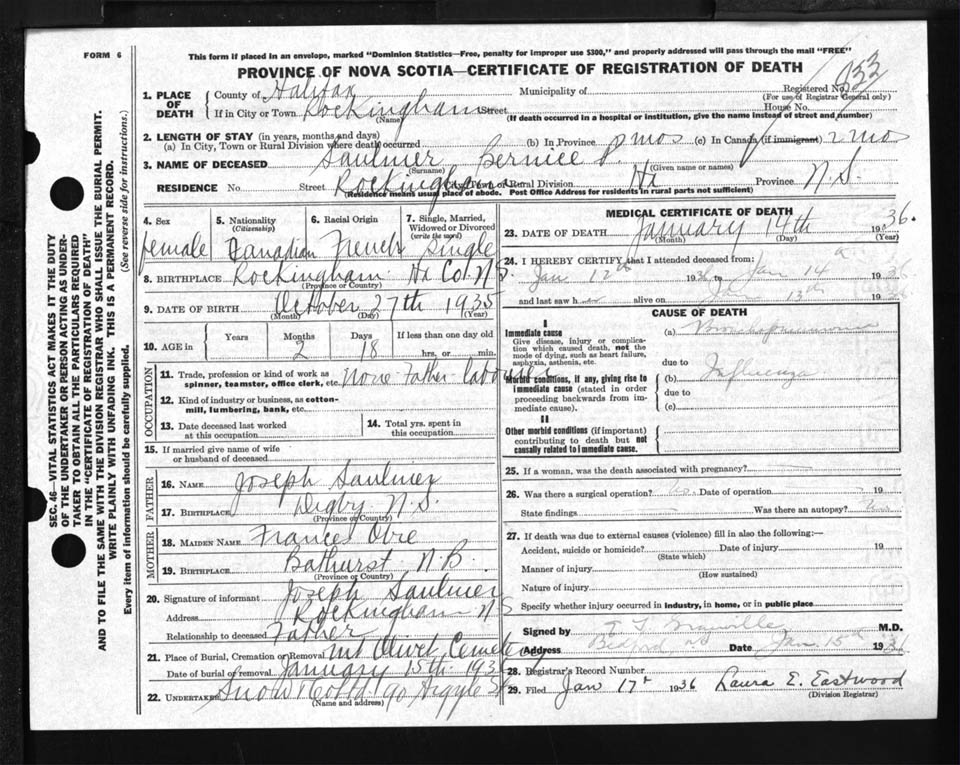 FORM 6
This form if placed in an envelope, marked "Dominion Statistics—Free, penalty for improper use $300," and properly addressed will pass through the mail "FREE"
PROVINCE OF NOVA SCOTIA—CERTIFICATE OF REGISTRATION OF DEATH
1. PLACE OF DEATH
County of Halifax Municipality of Registered No.
(For use of Registrar General only)
If in City or Town Rockingham Street House No.
(Name) (If death occurred in a hospital or institution, give the name instead of street and number)
2. LENGTH OF STAY (in years, months and days)
(a) In City, Town or Rural Division where death occurred (b) In Province 2 mos (c) In Canada (if immigrant) 2 mos
3. NAME OF DECEASED Saulnier Bernice
(Surname) (Given name or names)
RESIDENCE No. Street Rockingham City, Town or Rural Division Hx Province N.S.
(Residence means usual place of abode. Post Office Address for residents in rural parts not sufficient)
4. Sex
female
5. Nationality
(Citizenship)
Canadian
6. Racial Origin
French
7. Single, Married, Widowed or Divorced
(write the word)
Single
8. BIRTHPLACE Rockingham Hx Co. N.S.
(Province or Country)
9. DATE OF BIRTH October 27th 1935
(Month) (Day) (Year)
10. AGE in Years Months Days If less than one day old
2 18 hrs, or min.
OCCUPATION
11. Trade, profession or kind of work as spinner, teamster, office clerk, etc. None Father labourer
12. Kind of industry or business, as cotton-mill, lumbering, bank, etc.
13. Date deceased last worked at this occupation
14. Total yrs. spent in this occupation
15. If married give name of wife or husband of deceased
FATHER
16. NAME Joseph Saulnier
17. BIRTHPLACE Digby N.S.
(Province or Country)
MOTHER
18. MAIDEN NAME Frances
19. BIRTHPLACE Bathurst N.B.
(Province or Country)
20. Signature of informant Joseph Saulnier
Address Rockingham N.S
Relationship to deceased Father
21. Place of Burial, Cremation or Removal Mt Olivet Cemetery
Date of burial or removal January 15th 1936
22. UNDERTAKER Snow & Co Ltd 90 Argyle St
(Name and address)
MEDICAL CERTIFICATE OF DEATH
23. DATE OF DEATH January 14th 1936.
(Month) (Day) (Year)
24. I HEREBY CERTIFY that I attended deceased from:
Jan 12th 1936 to Jan 14th 1936
and last saw h alive on Jan 13th 1936
CAUSE OF DEATH
I
Immediate cause
Give disease, injury or complication which caused death, not the mode of dying, such as heart failure, asphyxia, asthenia, etc.
(a) Bronchopneumonia
due to
Morbid conditions, if any, giving rise to immediate cause (stated in order proceeding backwards from immediate cause).
(b) Influenza
due to
(c)
II
Other morbid conditions (if important) contributing to death but not causally related to immediate cause.
25. If a woman, was the death associated with pregnancy?
26. Was there a surgical operation? no. Date of operation 19
State findings Was there an autopsy?
27. If death was due to external causes (violence) fill in also the following:—
Accident, suicide or homicide? Date of injury 19
(State which)
Manner of injury
(How sustained)
Nature of injury
Specify whether injury occurred in industry, in home, or in public place
Signed by M.D.
Address Bedford NS Date Jan. 15th 1936
28. Registrar's Record Number
29. Filed Jan 17th 1936 Laura E. Eastwood
(Division Registrar)
SEC. 46—VITAL STATISTICS ACT MAKES IT THE DUTY
OF THE UNDERTAKER OR PERSON ACTING AS UNDERTAKER TO OBTAIN ALL THE PARTICULARS REQUIRED
IN THE "CERTIFICATE OF REGISTRATION OF DEATH"
AND TO FILE THE SAME WITH THE DIVISION REGISTRAR WHO SHALL ISSUE THE BURIAL PERMIT.
WRITE PLAINLY WITH UNFADING INK. THIS IS A PERMANENT RECORD.
Every item of information should be carefully supplied. (See reverse side for instructions.)